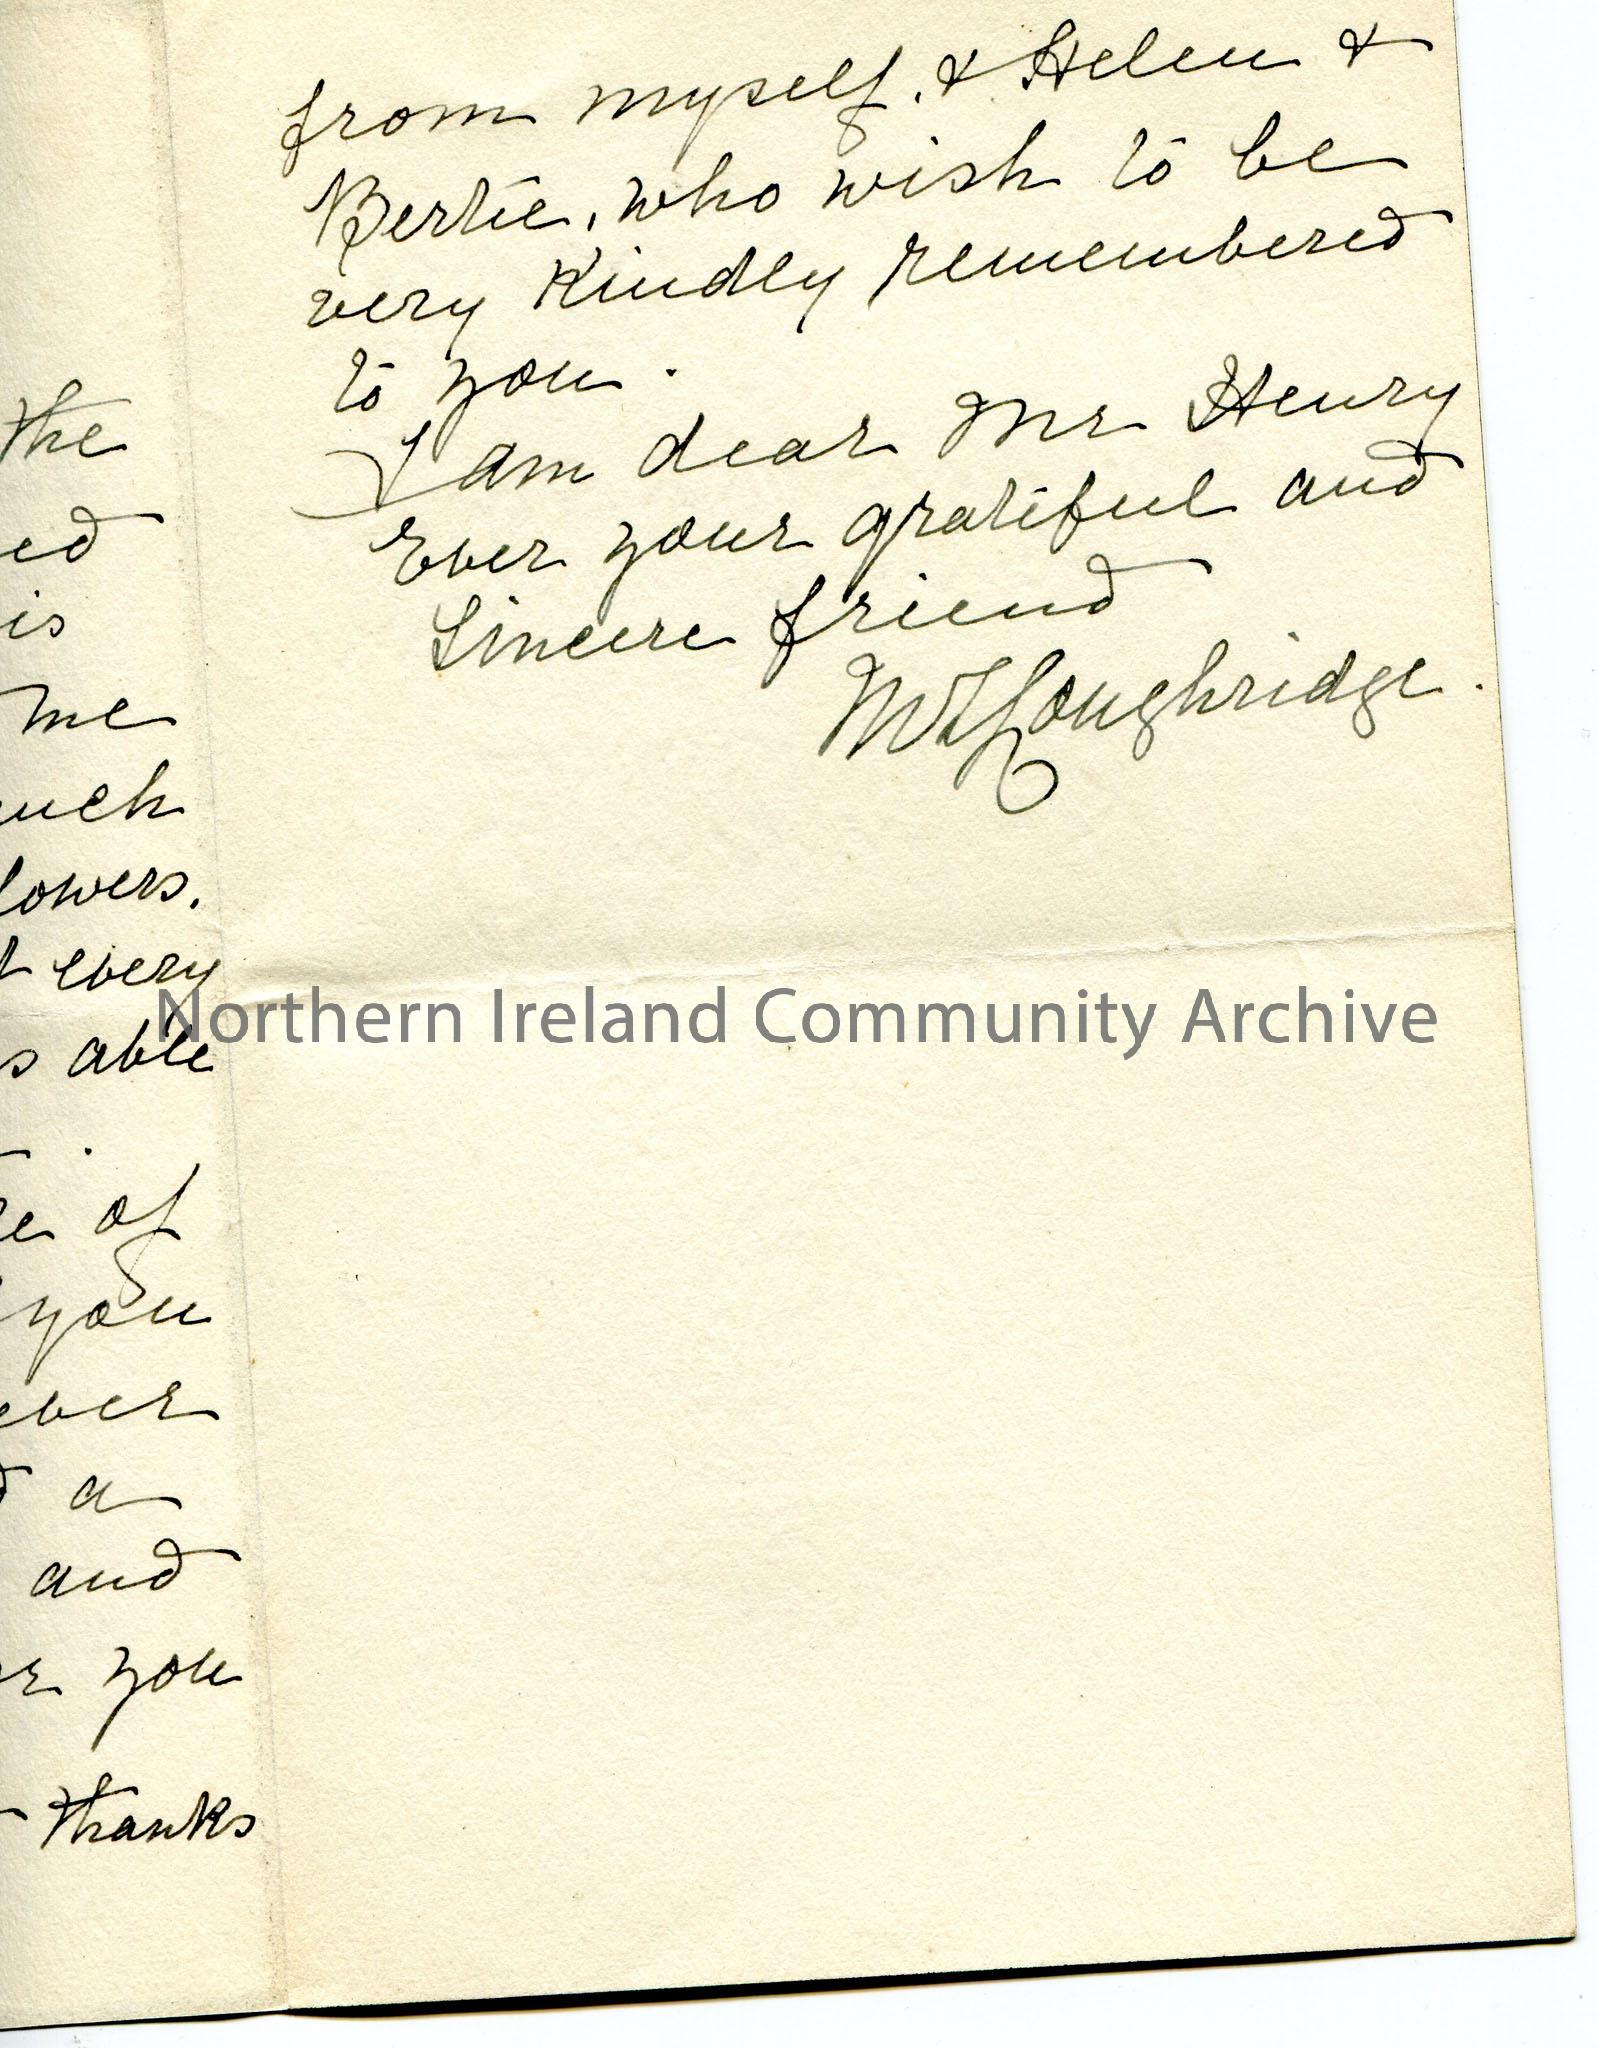 the
ed
is
me
uch
lowers.
t every
s able
e of
you
ever
d a
and
you
thanks
from myself, & Helen &
Bertie, who wish to be
very kindly remembered
to you.
I am dear Mr Henry
Ever your grateful and
Sincere friend
Loughridge.
Northern Ireland Community Archive